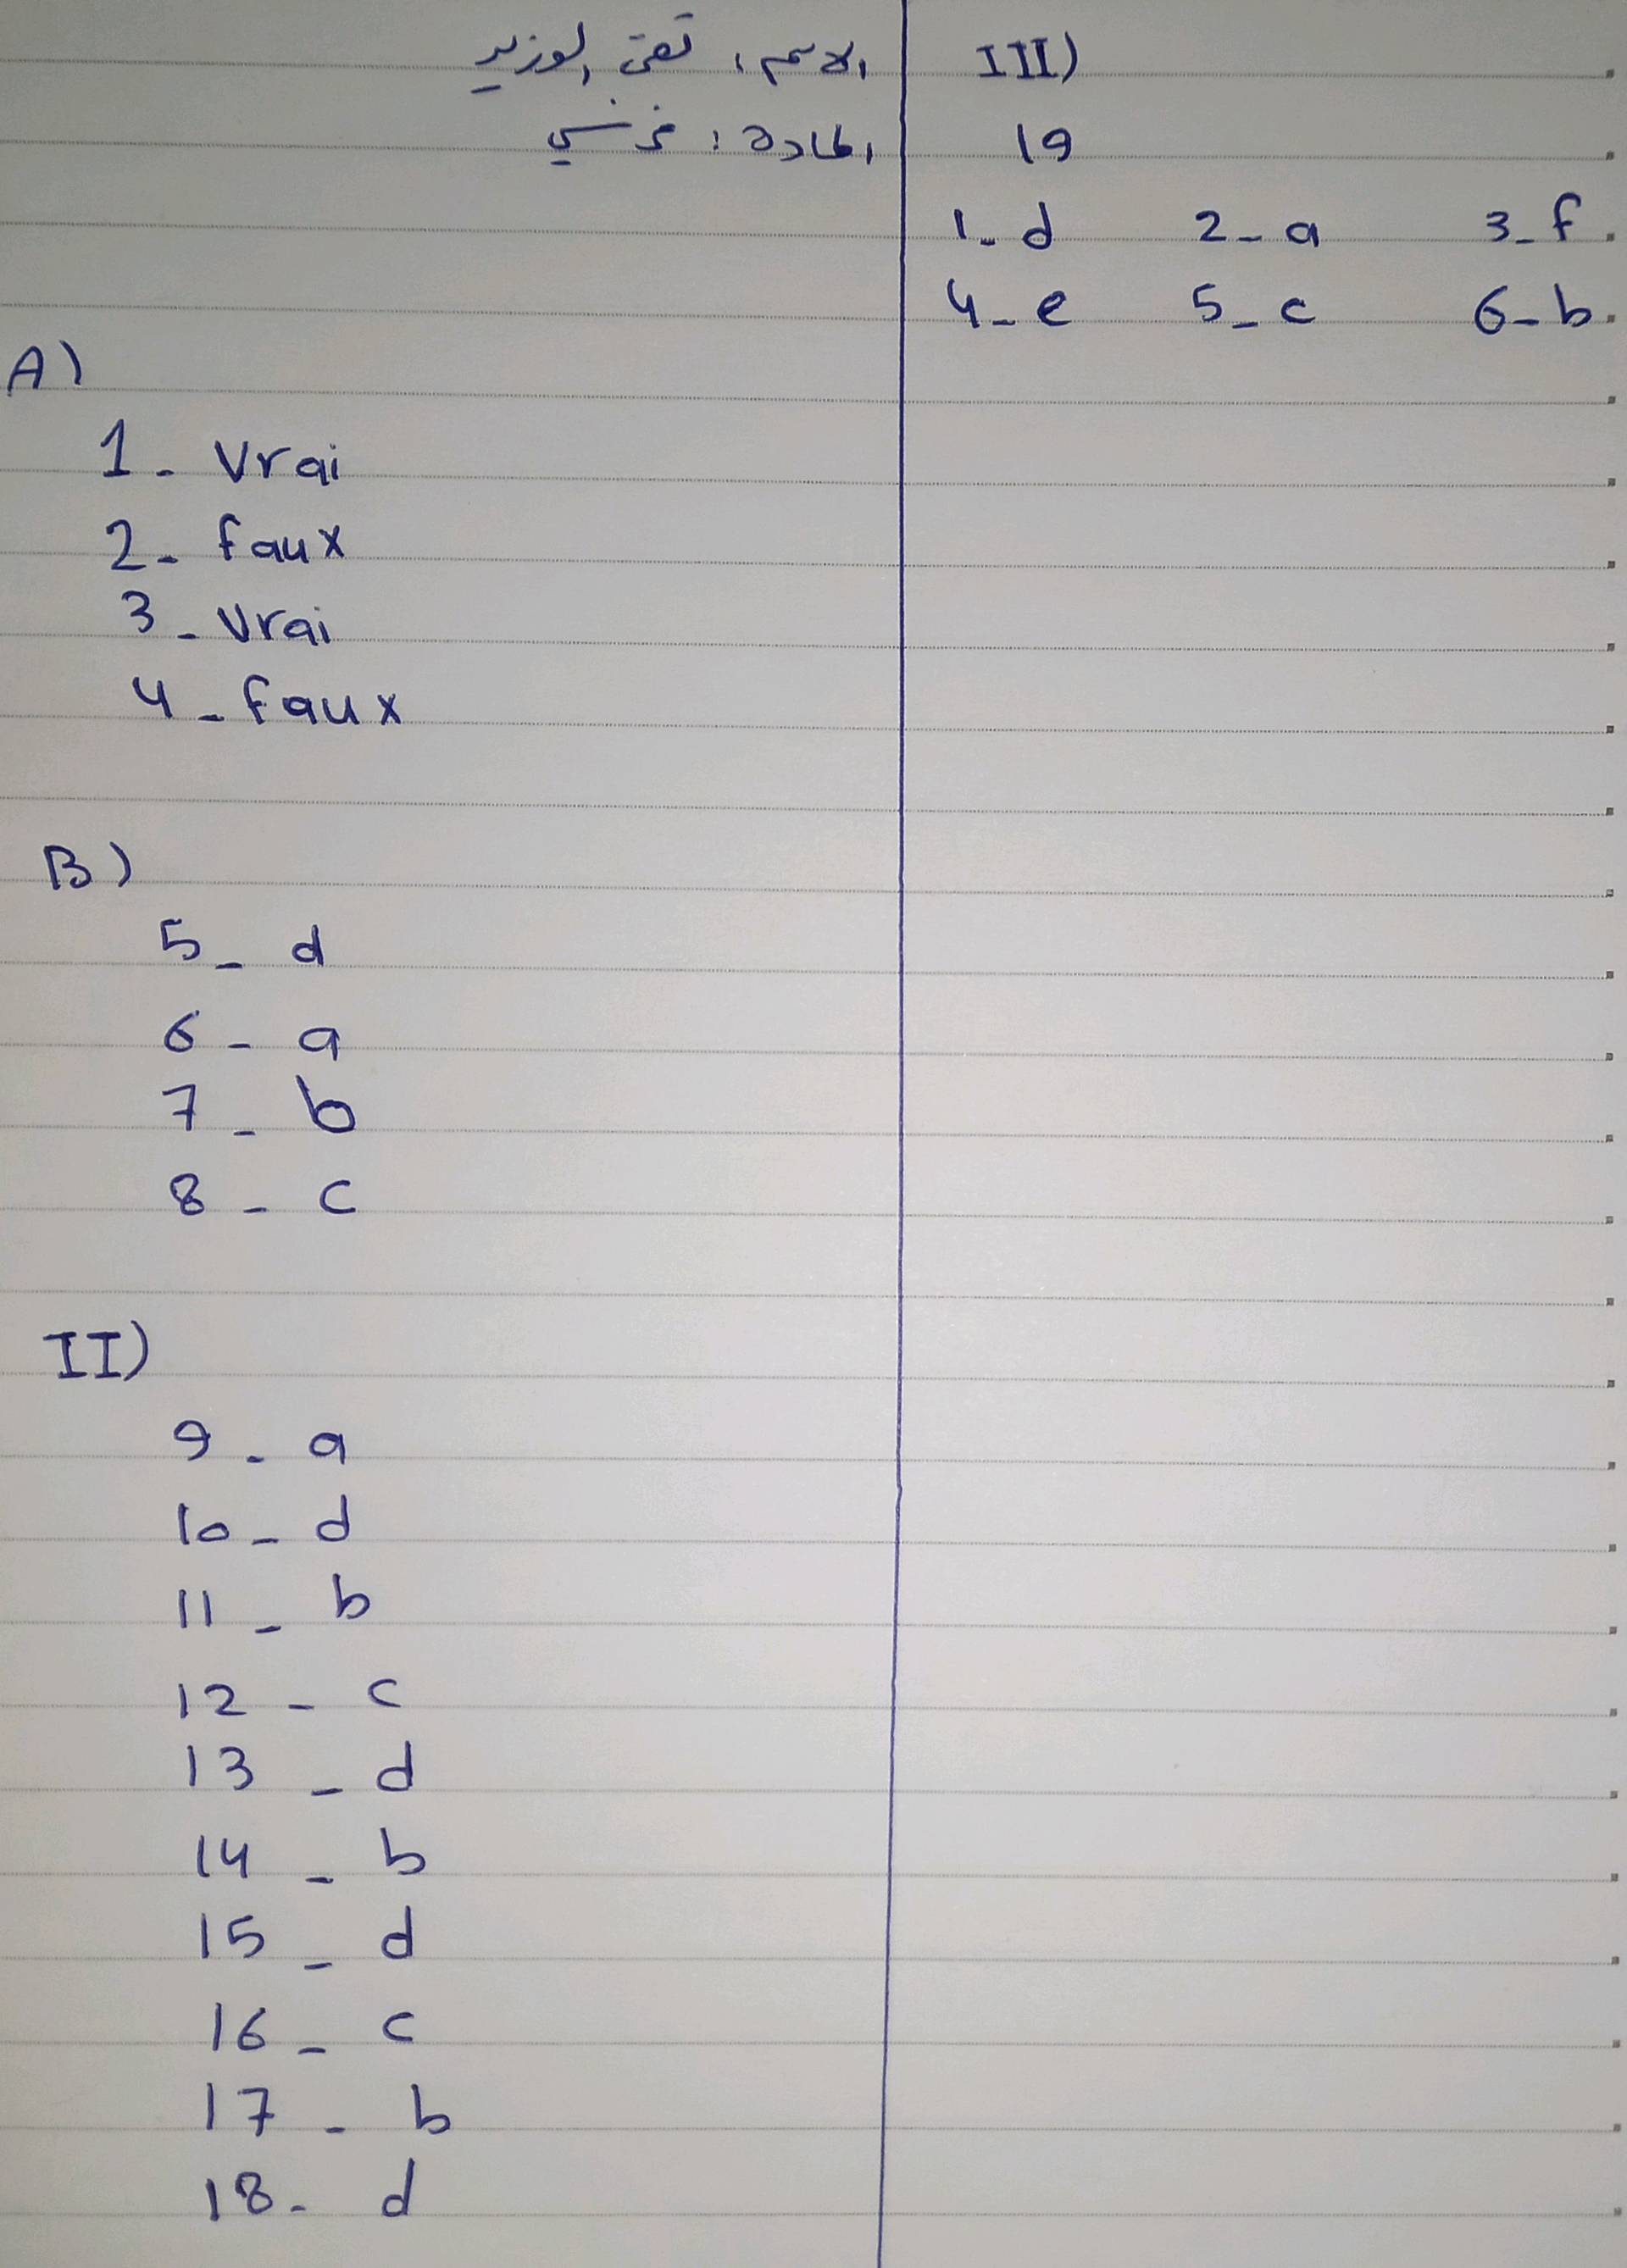 الاسم: تقى الوزير
المادة: فرنسي
A)
1- Vrai
2- faux
3- Vrai
4- faux
B)
5- d
6- a
7- b
8- c
II)
9- a
10- d
11- b
12- c
13- d
14- b
15- d
16- c
17- b
18- d
III)
19
1- d 2- a 3- f
4- e 5- c 6- b